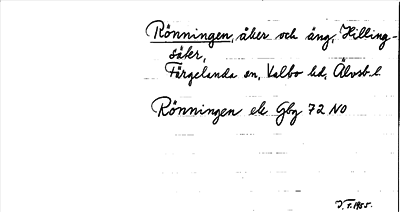 Rönningen, åker och äng, Hilling-
säter,
Färgelanda sn, Valbo hd, Älvsb. l.
Rönningen ek Gbg 72 NO
J. T. 1955.